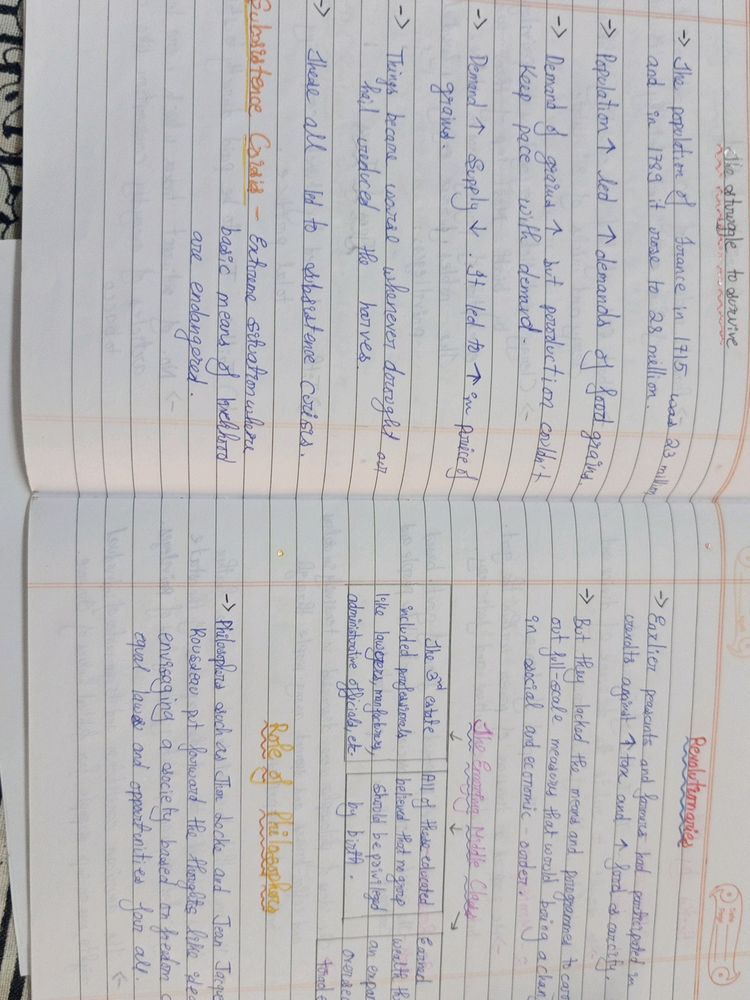 The struggle to survive
-> The population of France in 1715 was 23 million
and in 1789 it rose to 28 million.
-> Population ↑ led ↑ demands of food grains
-> Demand of grains ↑ but production couldn't
Keep pace with demand.
-> Demand ↑ Supply ↓. It led to ↑ in price of
grains.
-> Things became worse whenever drought or
hail reduced the harves.
-> These all led to subsistence crisis.
Subsistence Corsis - Extreme situation where
basic means of livelihood
are endangered.
Revolutionaries
-> Earlier peasants and farmers had participated in
revolts against ↑ tax and ↑ food scarcity.
-> But they lacked the means and programmes to carr
out full-scale measures that would bring a chan
in social and economic-order.
The Emerting Middle Class
The 3rd estate
included professionals
like lawyers,
administrative officials, etc.
All of these educated
believed that no group
should be privileged
by birth.
Earned
wealth th
an expan
overseas
trade
Role of Philosophers
-> Philosophers such as Jhon Locke and Jean Jacque
Rousseau put forward the thoughts like
envisaging a society based on freedom
equal laws and opportunities for all.